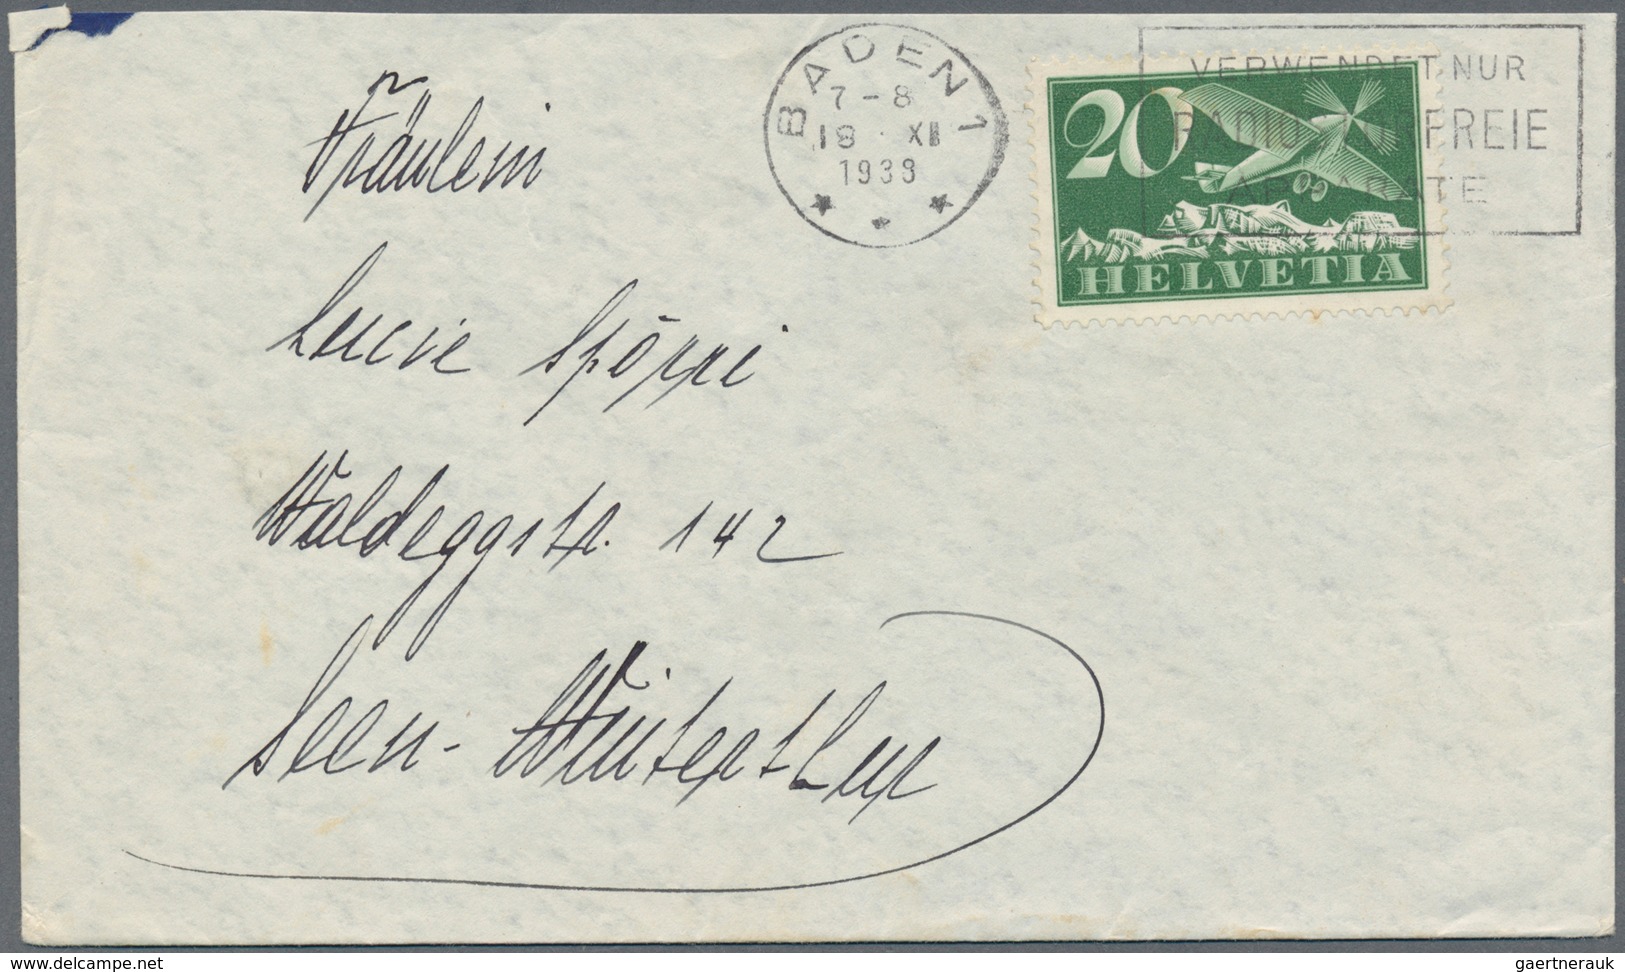 BADEN 1
7-8
18 · XII
1938
VERWENDET NUR
FREIE
20
HELVETIA
Fräulein
Lucie Spörri
Waldeggstr. 142
Seen-Winterthur
www.delcampe.net
gaertnerauk